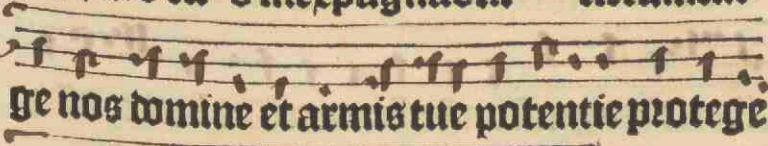 ge nos domine et armis tue potentie protege